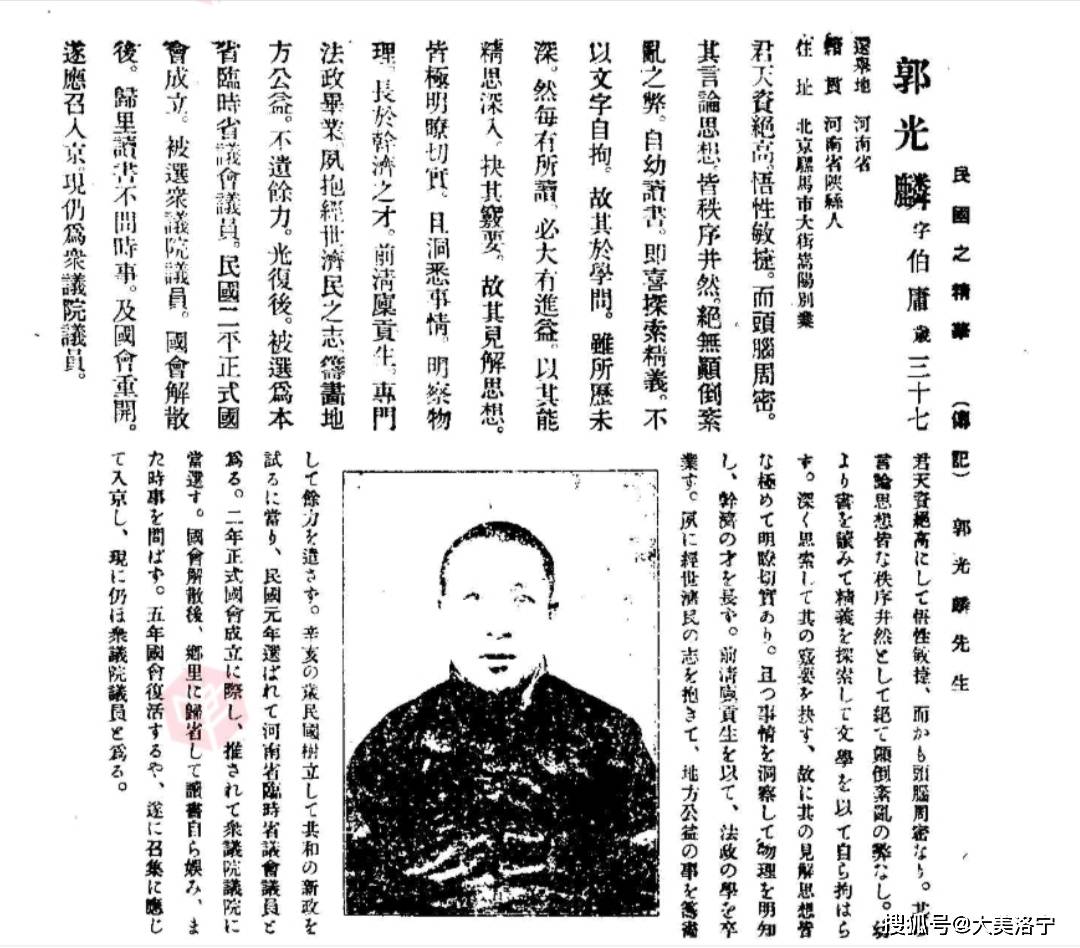 民國之精華 （傳記） 郭光麟先生
郭光麟 字伯庸 歲三十七
選舉地 河南省
籍貫 河南省陝縣人
住址 北京騾馬市大街嵩陽別業
君天資絕高。悟性敏捷。而頭腦周密。
其言論思想。皆秩序井然。絕無顚倒紊
亂之弊。自幼讀書。即喜探索精義。不
以文字自拘。故其於學問。雖所歷未
深。然每有所讀。必大有進益。以其能
精思深入。抉其竅要。故其見解思想。
皆極明瞭切實。且洞悉事情。明察物
理。長於幹濟之才。前清廩貢生。專門
法政畢業。夙抱經世濟民之志。籌畫地
方公益。不遺餘力。光復後。被選爲本
省臨時省議會議員。民國二年正式國
會成立。被選衆議院議員。國會解散
後。歸里讀書不問時事。及國會重開。
遂應召入京。現仍爲衆議院議員。
君天資絕高にして悟性敏捷、而かも頭腦周密なり。其
言論思想皆な秩序井然として絕て顚倒紊亂の弊なし。幼
より書を讀みて精義を探索して文學を以て自ら拘はら
す。深く思索して其の竅要を抉す、故に其の見解思想皆
な極めて明瞭切實あり。且つ事情を洞察して物理を明知
し、幹濟の才を長す。前淸廩貢生を以て、法政の學を卒
業す。夙に經世濟民の志を抱きて、地方公益の事を籌畫
して餘力を遺さす。辛亥の歲民國樹立して共和の新政を
試るに當り、民國元年選ばれて河南省臨時省議會議員と
爲る。二年正式國會成立に際し、推されて衆議院議院に
當選す。國會解散後、鄕里に歸省して讀書自ら娛み、ま
た時事を問ばす。五年國會復活するや、遂に召集に應じ
て入京し、現に仍ほ衆議院議員と爲る。
搜狐号@大美洛宁